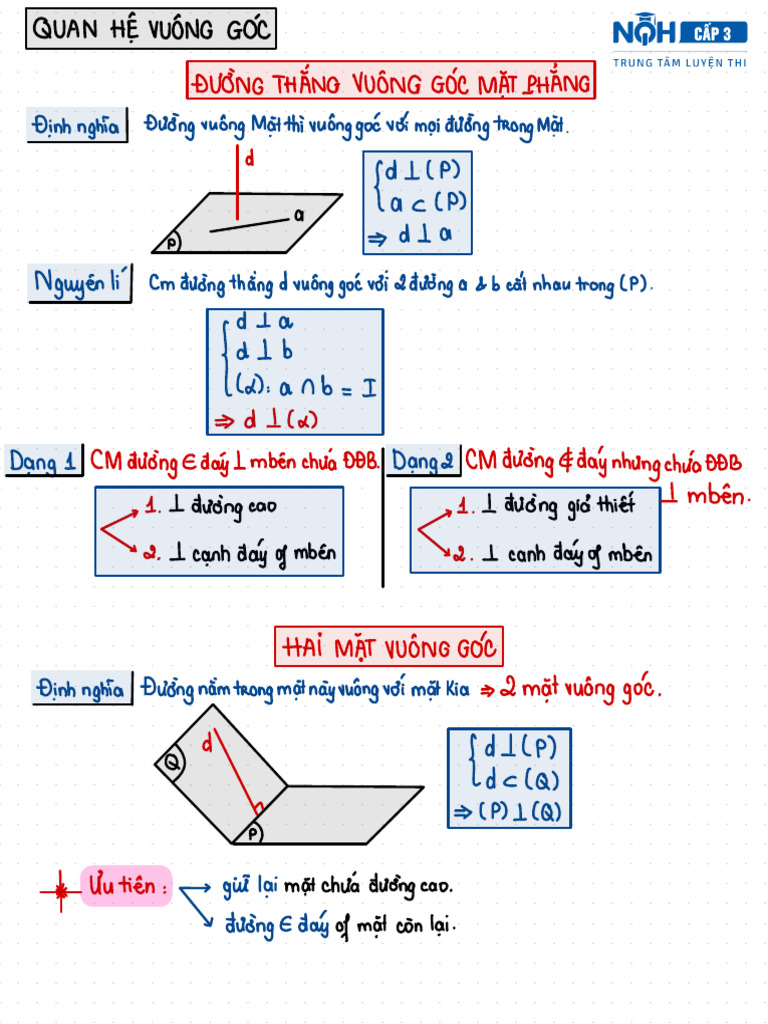 QUAN HỆ VUÔNG GÓC
NQH CẤP 3
TRUNG TÂM LUYỆN THI
ĐƯỜNG THẲNG VUÔNG GÓC MẶT PHẲNG
Định nghĩa Đường vuông Mặt thì vuông góc với mọi đường trong Mặt.
d
a
P
d ⊥ (P)
a ⊂ (P)
⇒ d ⊥ a
Nguyên lí Cm đường thẳng d vuông góc với 2 đường a & b cắt nhau trong (P).
d ⊥ a
d ⊥ b
(α): a ∩ b = I
⇒ d ⊥ (α)
Dạng 1 CM đường ∈ đáy ⊥ mbên chứa ĐĐB.
1. ⊥ đường cao
2. ⊥ cạnh đáy of mbên
Dạng 2 CM đường ∉ đáy nhưng chứa ĐĐB
⊥ mbên.
1. ⊥ đường giả thiết
2. ⊥ cạnh đáy of mbên
HAI MẶT VUÔNG GÓC
Định nghĩa Đường nằm trong mặt này vuông với mặt kia ⇒ 2 mặt vuông góc.
Q
d
P
d ⊥ (P)
d ⊂ (Q)
⇒ (P) ⊥ (Q)
Ưu tiên :
giữ lại mặt chứa đường cao.
đường ∈ đáy of mặt còn lại.